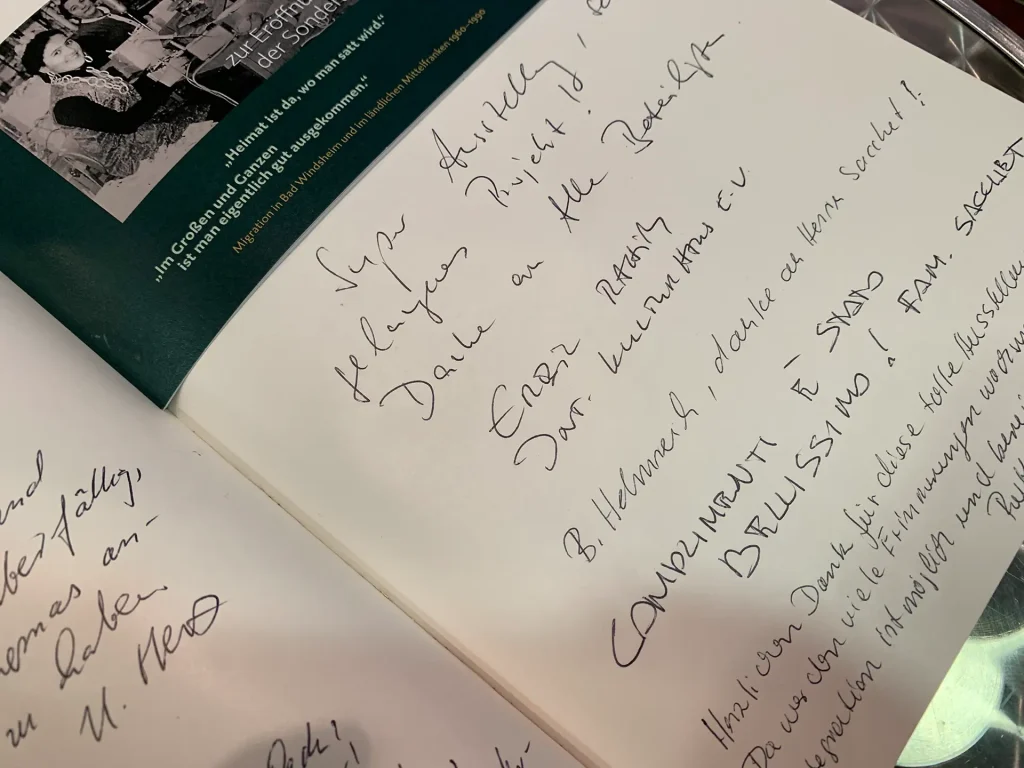 zur Eröffnung
der Sonder
„Heimat ist da, wo man satt wird“
„Im Großen und Ganzen
ist man eigentlich gut ausgekommen.“
Migration in Bad Windsheim und im ländlichen Mittelfranken 1960–1990
Super Ausstellg,
gelungenes Projekt!
Danke an Alle Beteiligte
Dar. Kulturhaus e.V.
B. Helmreich, danke an Herrn Sacchet!
COMPLIMENTI È STATO
BELLISSIMO! FAM. SACCHET
Herzlichen Dank für diese tolle Ausstellun
Da werden viele Erinnerungen wach
tegration ist möglich und berei
und
überfällig,
an-
haben.
zu